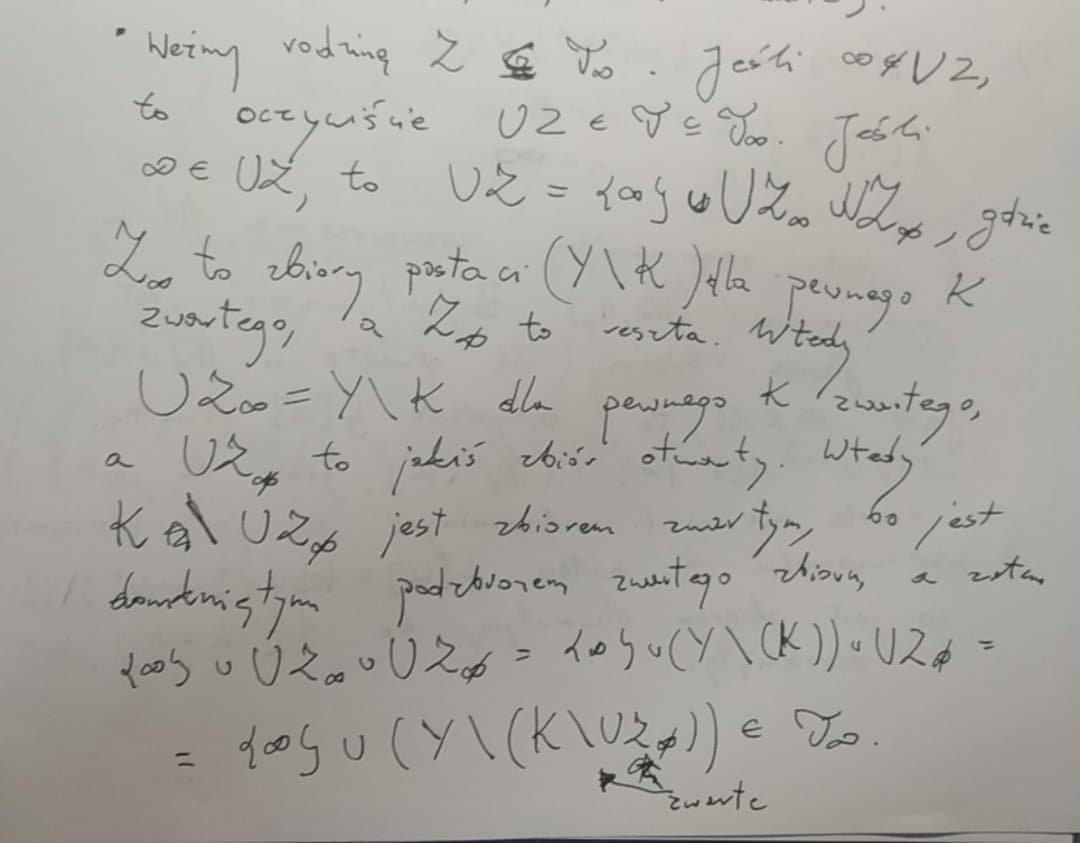 • Weźmy rodzinę Z ⊆ 𝒯∞. Jeśli ∞ ∉ ∪Z,
to oczywiście ∪Z ∈ 𝒯 ⊆ 𝒯∞. Jeśli
∞ ∈ ∪Z, to ∪Z = {∞} ∪ ∪Z∞ ∪ ∪Z∞̸, gdzie
Z∞ to zbiory postaci (Y\K) dla pewnego K
zwartego, a Z∞̸ to reszta. Wtedy
∪Z∞ = Y\K dla pewnego K zwartego,
a ∪Z∞̸ to jakiś zbiór otwarty. Wtedy
K \ ∪Z∞̸ jest zbiorem zwartym, bo jest
domkniętym podzbiorem zwartego zbioru, a zatem
{∞} ∪ ∪Z∞ ∪ ∪Z∞̸ = {∞} ∪ (Y\(K)) ∪ ∪Z∞̸ =
= {∞} ∪ (Y\(K\∪Z∞̸)) ∈ 𝒯∞.
zwarte